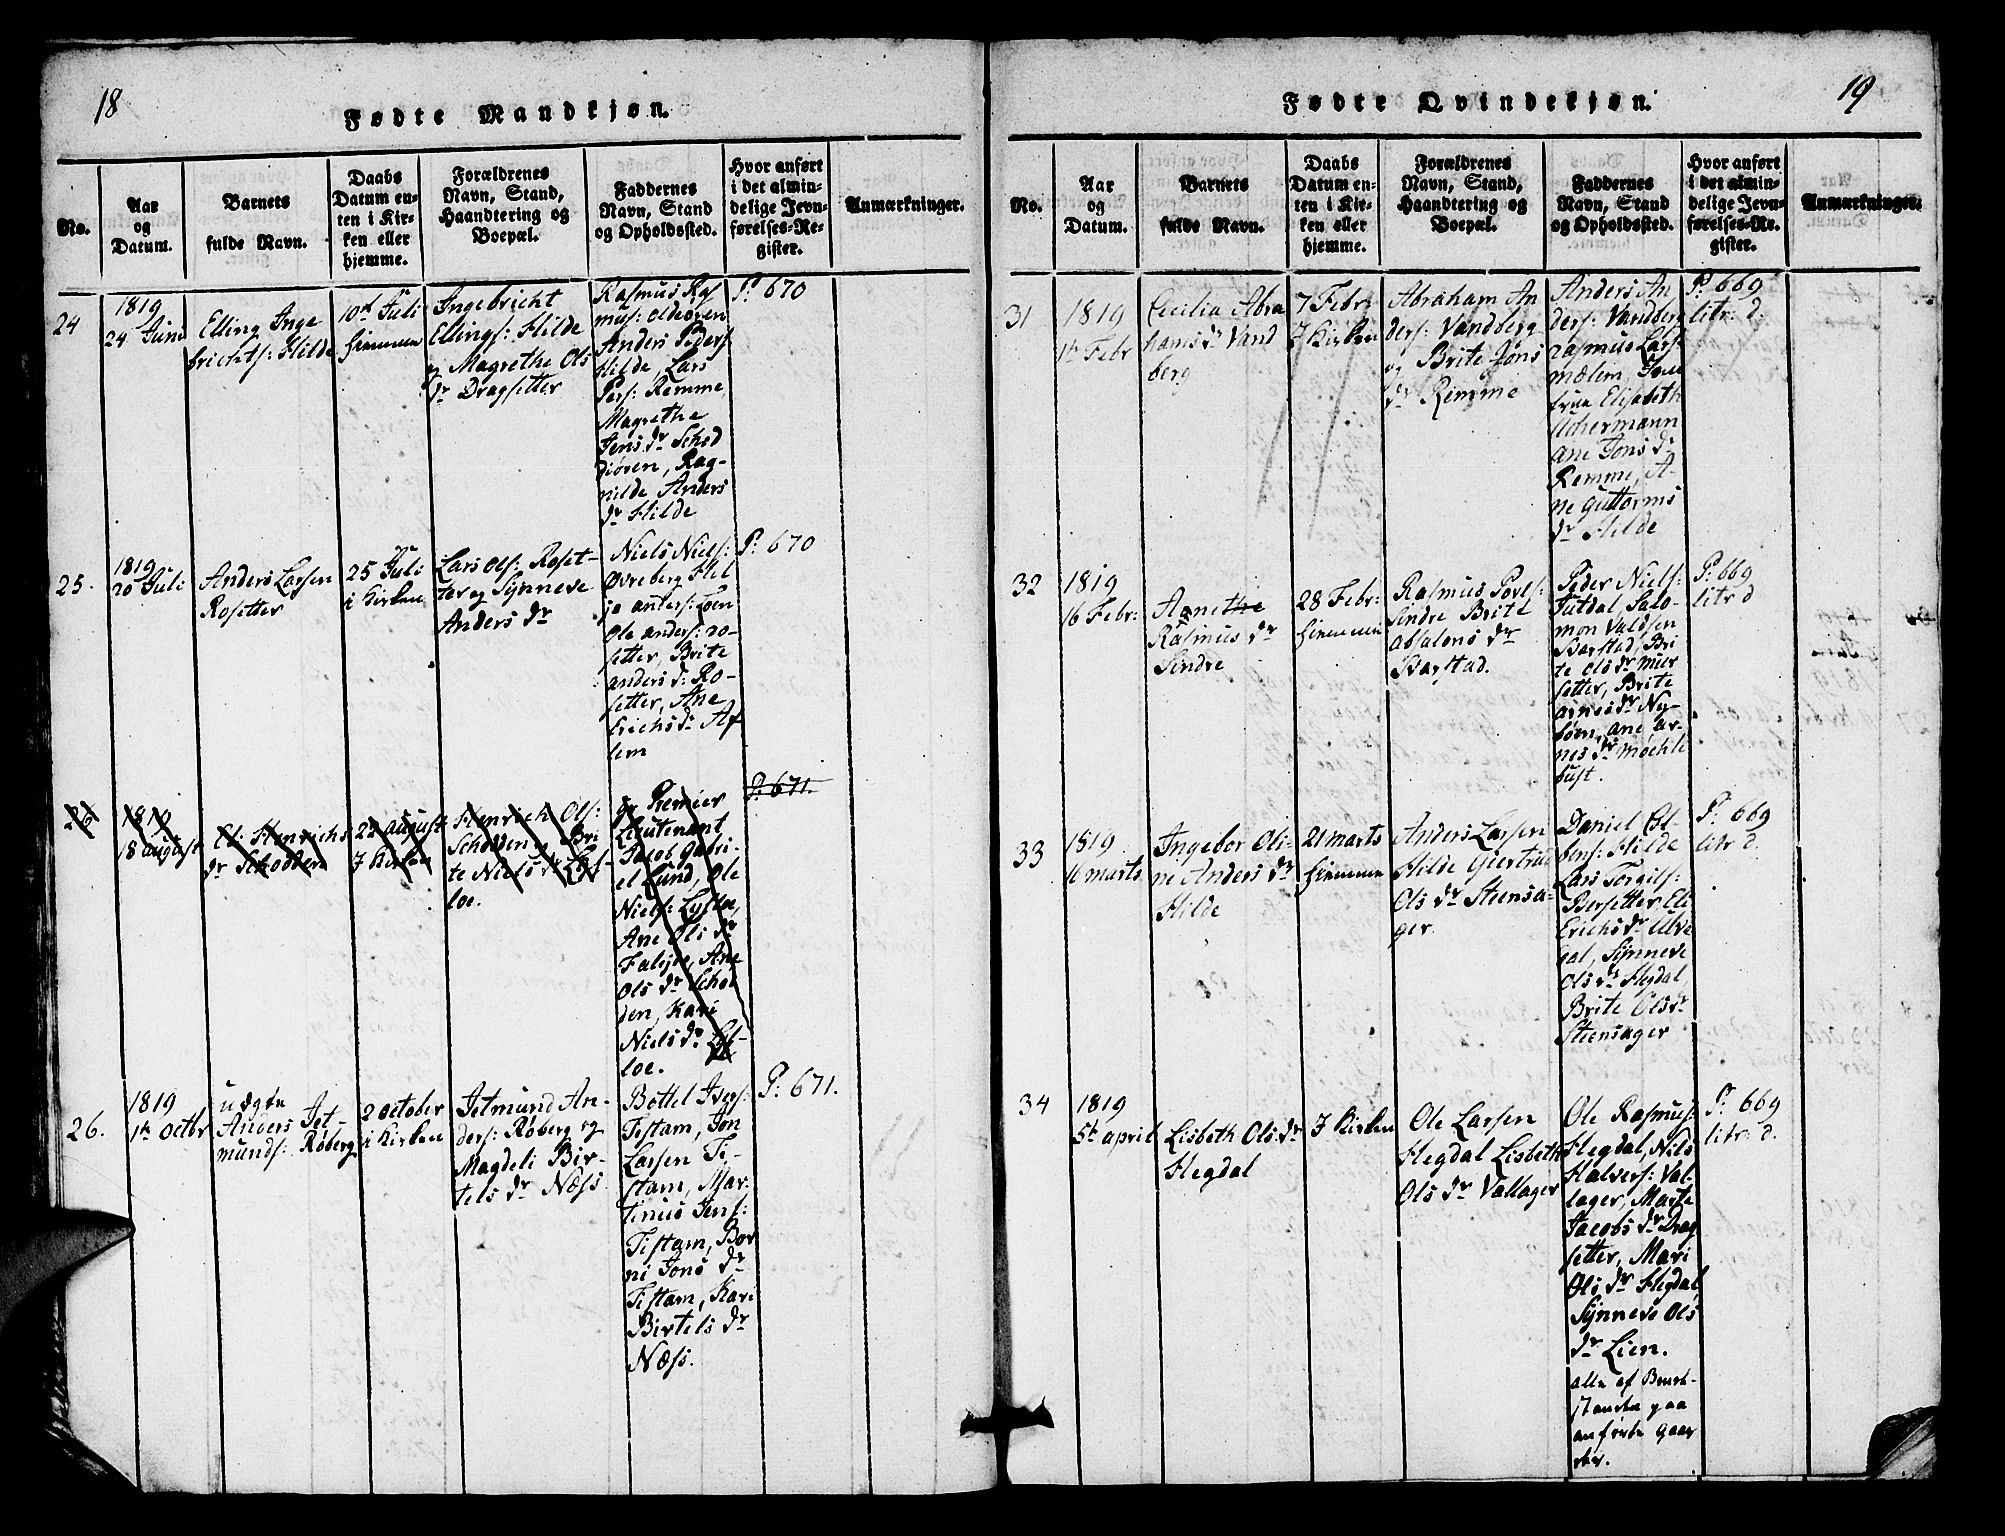 18
Fødte Mandkjøn.
No.
Aar
og
Datum.
Barnets
fulde Navn.
Daabs
Datum en-
ten i Kir-
ken eller
hjemme.
Forældrenes
Navn, Stand,
Haandtering og
Boepæl.
Faddernes
Navn, Stand
og Opholdssted.
Hvor anført
i det almin-
delige Jevn-
førelses-Re-
gister.
Anmærkninger.
24
1819
24 Juni
Elling Inge
brichts: Hilde
10de Juli
hiemmen
Ingebricht
Ellings: Hilde
og Magrethe Ols
dr Dragsetter
Rasmus Ras
mus: oldeøren
Anders Peders
Hilde, Lars
Pers: Remme,
Magrethe
Jens dr Schod
diøren, Rag-
nilde Anders
dr Hilde
P: 670
25.
1819
20 Juli
Anders Larsen
Rosetter
25 Juli
i Kirken
Lars Ols: Roset-
ter og Synneve
Anders dr
Niels Niels:
Øvreberg Hel
je anders: Loen
Ole anders: ro-
setter, Brite
anders d: Ro-
setter, Ane
Erichs dr Af
lem
P: 670
26
1819
18 august
Eli Henrichs
dr Schodden
22 august
J Kirken
Henrich Ols:
Schodden og Bri
te Niels dr Lys-
loe.
hr Remier
Lieutenant
Jacob Gabri-
el Lund, Ole
Niels: Lysloe,
Ane Oli dr
Faleide, Ane
Ols dr Schod
den, Kari
Niels dr Lys-
loe.
P: 671.
26.
1819
1te Octbr
uægte
Anders Jet-
munds: Røberg
2 october
i Kirken
Jetmund An-
ders: Røberg og
Magdeli Bir-
tels dr Næss
Bottel Ivers:
Tistam, Jon
Larsen Ti-
stam, Mar-
tinus Jens:
Tistam, Bor
ni Jons dr
Tistam, Kari
Birtels dr
Næss.
P: 671.
19
Fødte Qvindekjøn.
No.
Aar
og
Datum.
Barnets
fulde Navn.
Daabs
Datum en-
ten i Kir-
ken eller
hjemme.
Forældrenes
Navn, Stand,
Haandtering og
Boepæl.
Faddernes
Navn, Stand
og Opholdssted.
Hvor anført
i det almin-
delige Jevn-
førelses-Re-
gister.
Anmærkninger.
31
1819
1te Febr
Cecilia Abra
hams dr Vand
berg
7 Febr:
J Kirken
Abraham An
ders: Vandberg
og Brite Jøns
dr Remme
Anders An
ders: Vandberg
rasmus Lars:
mælem,
Elisabeth
Achermann
ane Jons dr
Remme, A-
ne guttorms
dr Hilde
P: 669
litr: d.
32
1819
16 Febr:
Agnethe
Rasmus dr
Sindre
28 Febr:
hiemmen
Rasmus Povels:
Sindre Brite
absalons dr
Barstad.
Peder Niels:
Jutdal Salo-
mon Valdsen
Barstad, Bri
te Ols dr muer
setter, Brite
arnes dr Ny-
bøen, ane ar-
nes dr møckle
bust.
P: 669
litr d
33
1819.
16 marts
Ingebor Oli-
ne Anders dr
Hilde
21 marts
hiemmen
Anders Larsen
Hilde Giertrud
Ols dr Steensa-
ger.
Daniel Es-
bens: Hilde
Lars Torgils:
Bersetter Eli
Erichs dr Ulve
dal, Synneve
Ols dr Hegdal,
Brite Ols dr
Steensager
P: 669
litr d.
34
1819
5te april
Lisbeth Ols dr
Hegdal
J Kirken
Ole Larsen
Hegdal Lisbeth
Ols dr Vallager
Ole Rasmus:
Hegdal, Nils
Halvers: Val-
lager, Marte
Jacobs dr Drag
setter, Mari
Ols dr Hegdal
Synneve Ols
dr Lien.
alle af Bonde-
standen paa
anførte gaar
der.
P: 669
litr: d.